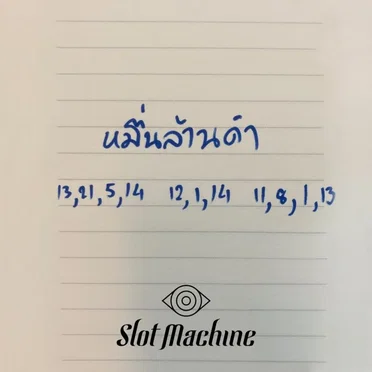 หมื่นล้านคำ
13,21,5,14 12,1,14 11,8,1,13
Slot Machine